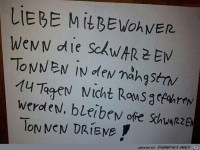 LIEBE MitBEWOHNER
WENN die SCHWARZEN
TONNEN iN den nähgsten
14 TAgen Nicht RAUS gefahren
werden, bleiben die Schwarzen
TONNEN DRIENE!